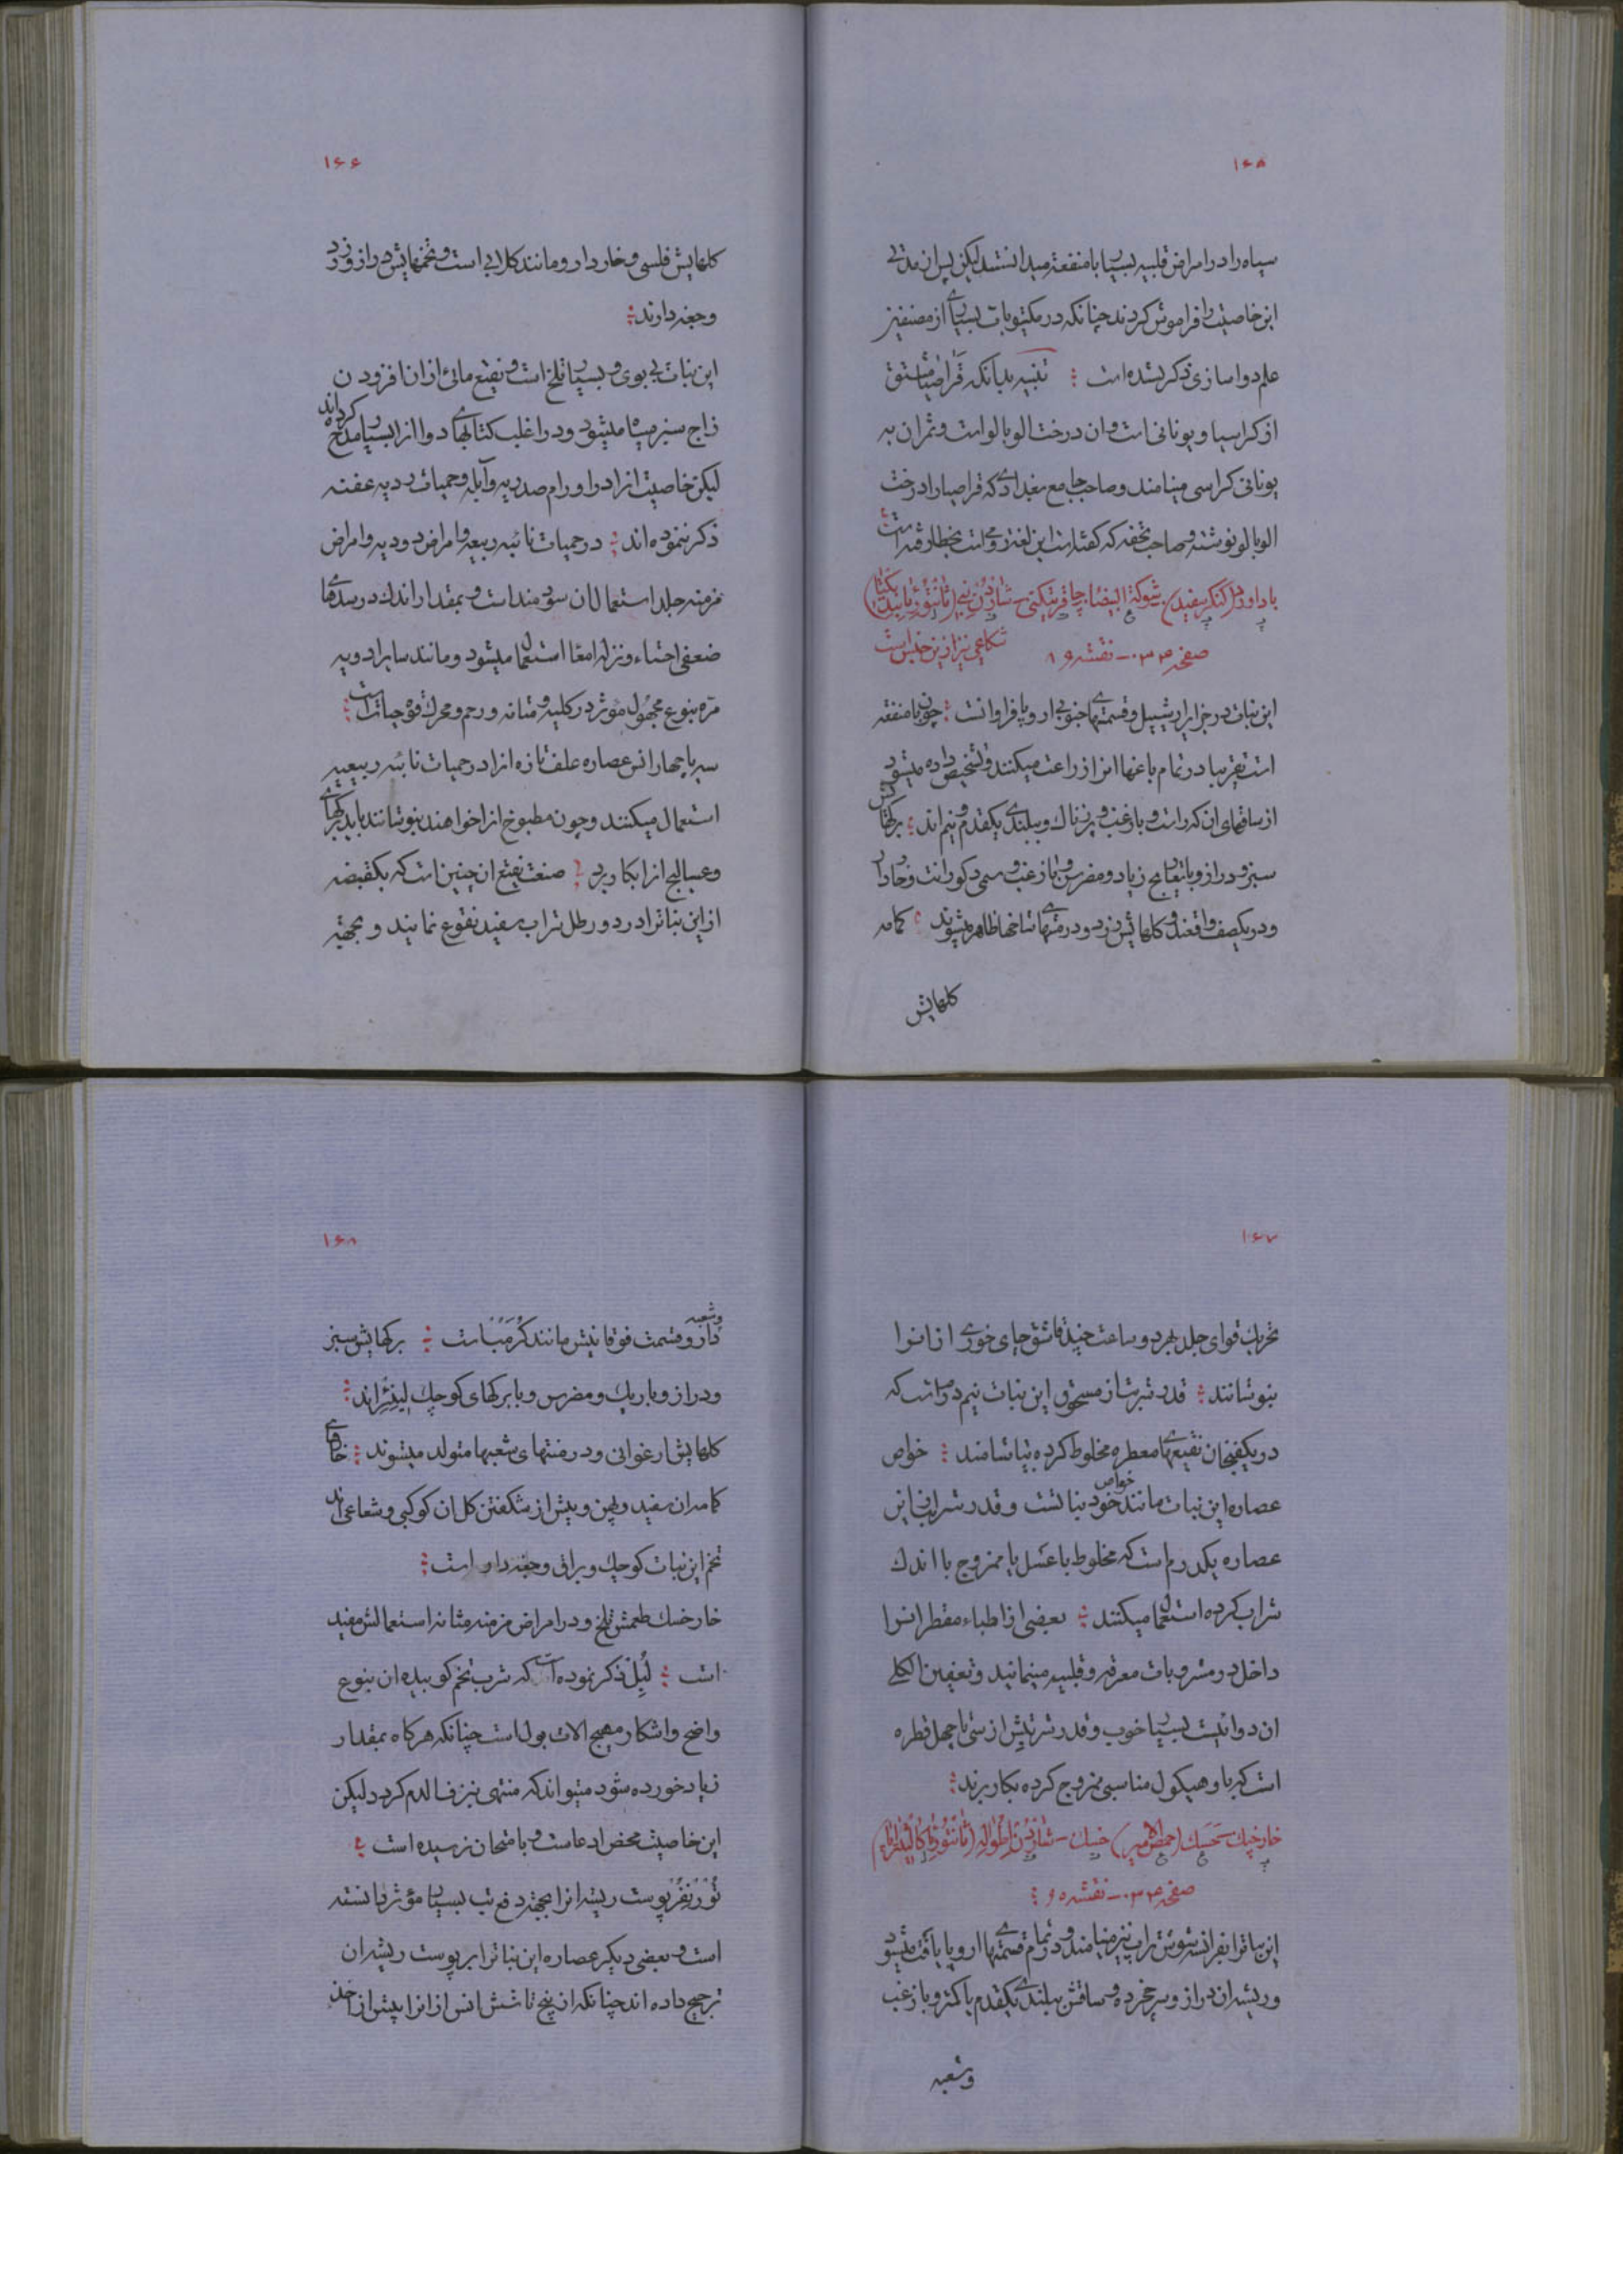 ۱۶۵
سیاه را در امراض قلبیه بسیار با منفعة میدانستند لیکن پس از مدتی
این خاصیت را فراموش کردند چنانکه در مکتوبات بسیاری از مصنفین
علم دواسازی ذکر نشده است ؛ تنبیه بدانکه قراصیا مشتق
از کراسیا و یونانی است و ان درخت الوبالو است و ثمر ان به
یونانی کراسی مینامند و صاحب جامع بغدادی که قراصیا را درخت
الوبالو نوشته و صاحب تحفه که گفته است این لغة رومی است بخطا رفته است
باداورد (کنگر سفید) شوکة البیضا
صفحه ۳۳۰ - نقشه ۹۱ شکاعی نیز ازین جنس است
این نبات در جزایر ارشیپل و قسمتهای جنوبی اروپا فراوانست ؛ چون با منفعة
است تقریبا در تمام باغها انرا زراعت میکنند و تشخیص داده میشود
از ساقهای ان که راست و با زغب و پرزناک و ببلندی یکقدم و نیم اند ؛ برگهایش
سبز و دراز و با تعاریج زیاد و مضرس و با زغب و خاردار
و در یکصف واقعند و گلهایش زرد و در منتهای شاخها ظاهر میشوند ؛ کامه
گلهایش
۱۶۶
گلهایش فلسی و خاردار و مانند کلابی است و تخمهایش دراز و زرد
و جغه دارند ؛
این نبات بی بوی و بسیار تلخ است و نقیع مائی از ان افزودن
زاج سبز سیاه میشود و در اغلب کتابهای دوا از ان بسیار مدح کرده‌اند
لیکن خاصیت انرا در اورام صدریه و آبله و حمیات ردیه عفنه
ذکر ننموده اند ؛ در حمیات نائبه ربعیه و امراض دودیه و امراض
مزمنه جلد استعمال ان سودمند است و بمقدار اندک در سدهای
ضعفی احشاء و نزله امعا استعمال میشود و مانند سایر ادویه
مره بنوع مجهول مؤثر در کلیه و مثانه و رحم و محرک قوه حیات است ؛
سه یا چهار انس عصاره علف تازه انرا در حمیات نائبه ربیعیه
استعمال میکنند و چون مطبوخ انرا خواهند بنوشانند باید برگهای
و عسالیج انرا بکار برد ؛ صنعت نقیع ان چنین است که یکقبضه
از این نبات را در دو رطل شراب سفید نقوع نمایند و بجهته
۱۶۷
تحریک قوای جلد بهر دو ساعت چند قاشق چای خوری از انرا
بنوشانند ؛ قدر شربت از مسحوق این نبات نیم درم است که
در یکفنجان نقیعهای معطره مخلوط کرده بیاشامند ؛ خواص
عصاره این نبات مانند خواص خود نباتست و قدر شراب این
عصاره یکدرم است که مخلوط با عسل یا ممزوج با اندک
شراب کرده استعمال میکنند ؛ بعضی از اطباء مقطر انرا
داخل در مشروبات معرقه و قلبیه مینمایند و تعفین الکلی
ان دوائیست بسیار خوب و قدر شربتش از سی تا چهل قطره
است که با وهیکول مناسبی ممزوج کرده بکار برند ؛
خارخسک - حسک (حمص الامیر) خسک
صفحه ۳۳۰ - نقشه ۹۵ ؛
این نبات را بفرانسه نیز مینامند و در تمام قسمتهای اروپا یافت میشود
و ریشه ان دراز و سرخ و ساقش ببلندی یکقدم یا کمتر و با زغب
و شعبه
۱۶۸
و شعبه دار و قسمت فوقانیش مانند است ؛ برگهایش سبز
و دراز و باریک و مضرس و با برگهای کوچک اند ؛
گلهایش ارغوانی و در منتهای شعبها متولد میشوند ؛ خارهای
کامه ان سفید و پهن و پیش از شکفتن گل ان کوکبی و شعاعی اند
تخم این نبات کوچک و براق و جغه دار است ؛
خارخسک طعمش تلخ و در امراض مزمنه مثانه استعمالش مفید
است ؛ ذکر نموده است که شرب تخم کوبیده ان بنوع
واضح و اشکار مهیج الات بول است چنانکه هرگاه بمقدار
زیاد خورده شود میتواند که منتهی بنزف الدم گردد لیکن
این خاصیت محض ادعا است و بامتحان نرسیده است ؛
تورنفر پوست ریشه انرا بجهته دفع تب بسیار مؤثر دانسته
است و بعضی دیگر عصاره این نبات را بر پوست ریشه ان
ترجیح داده اند چنانکه از پنج تا شش انس از انرا پیش از اخذ